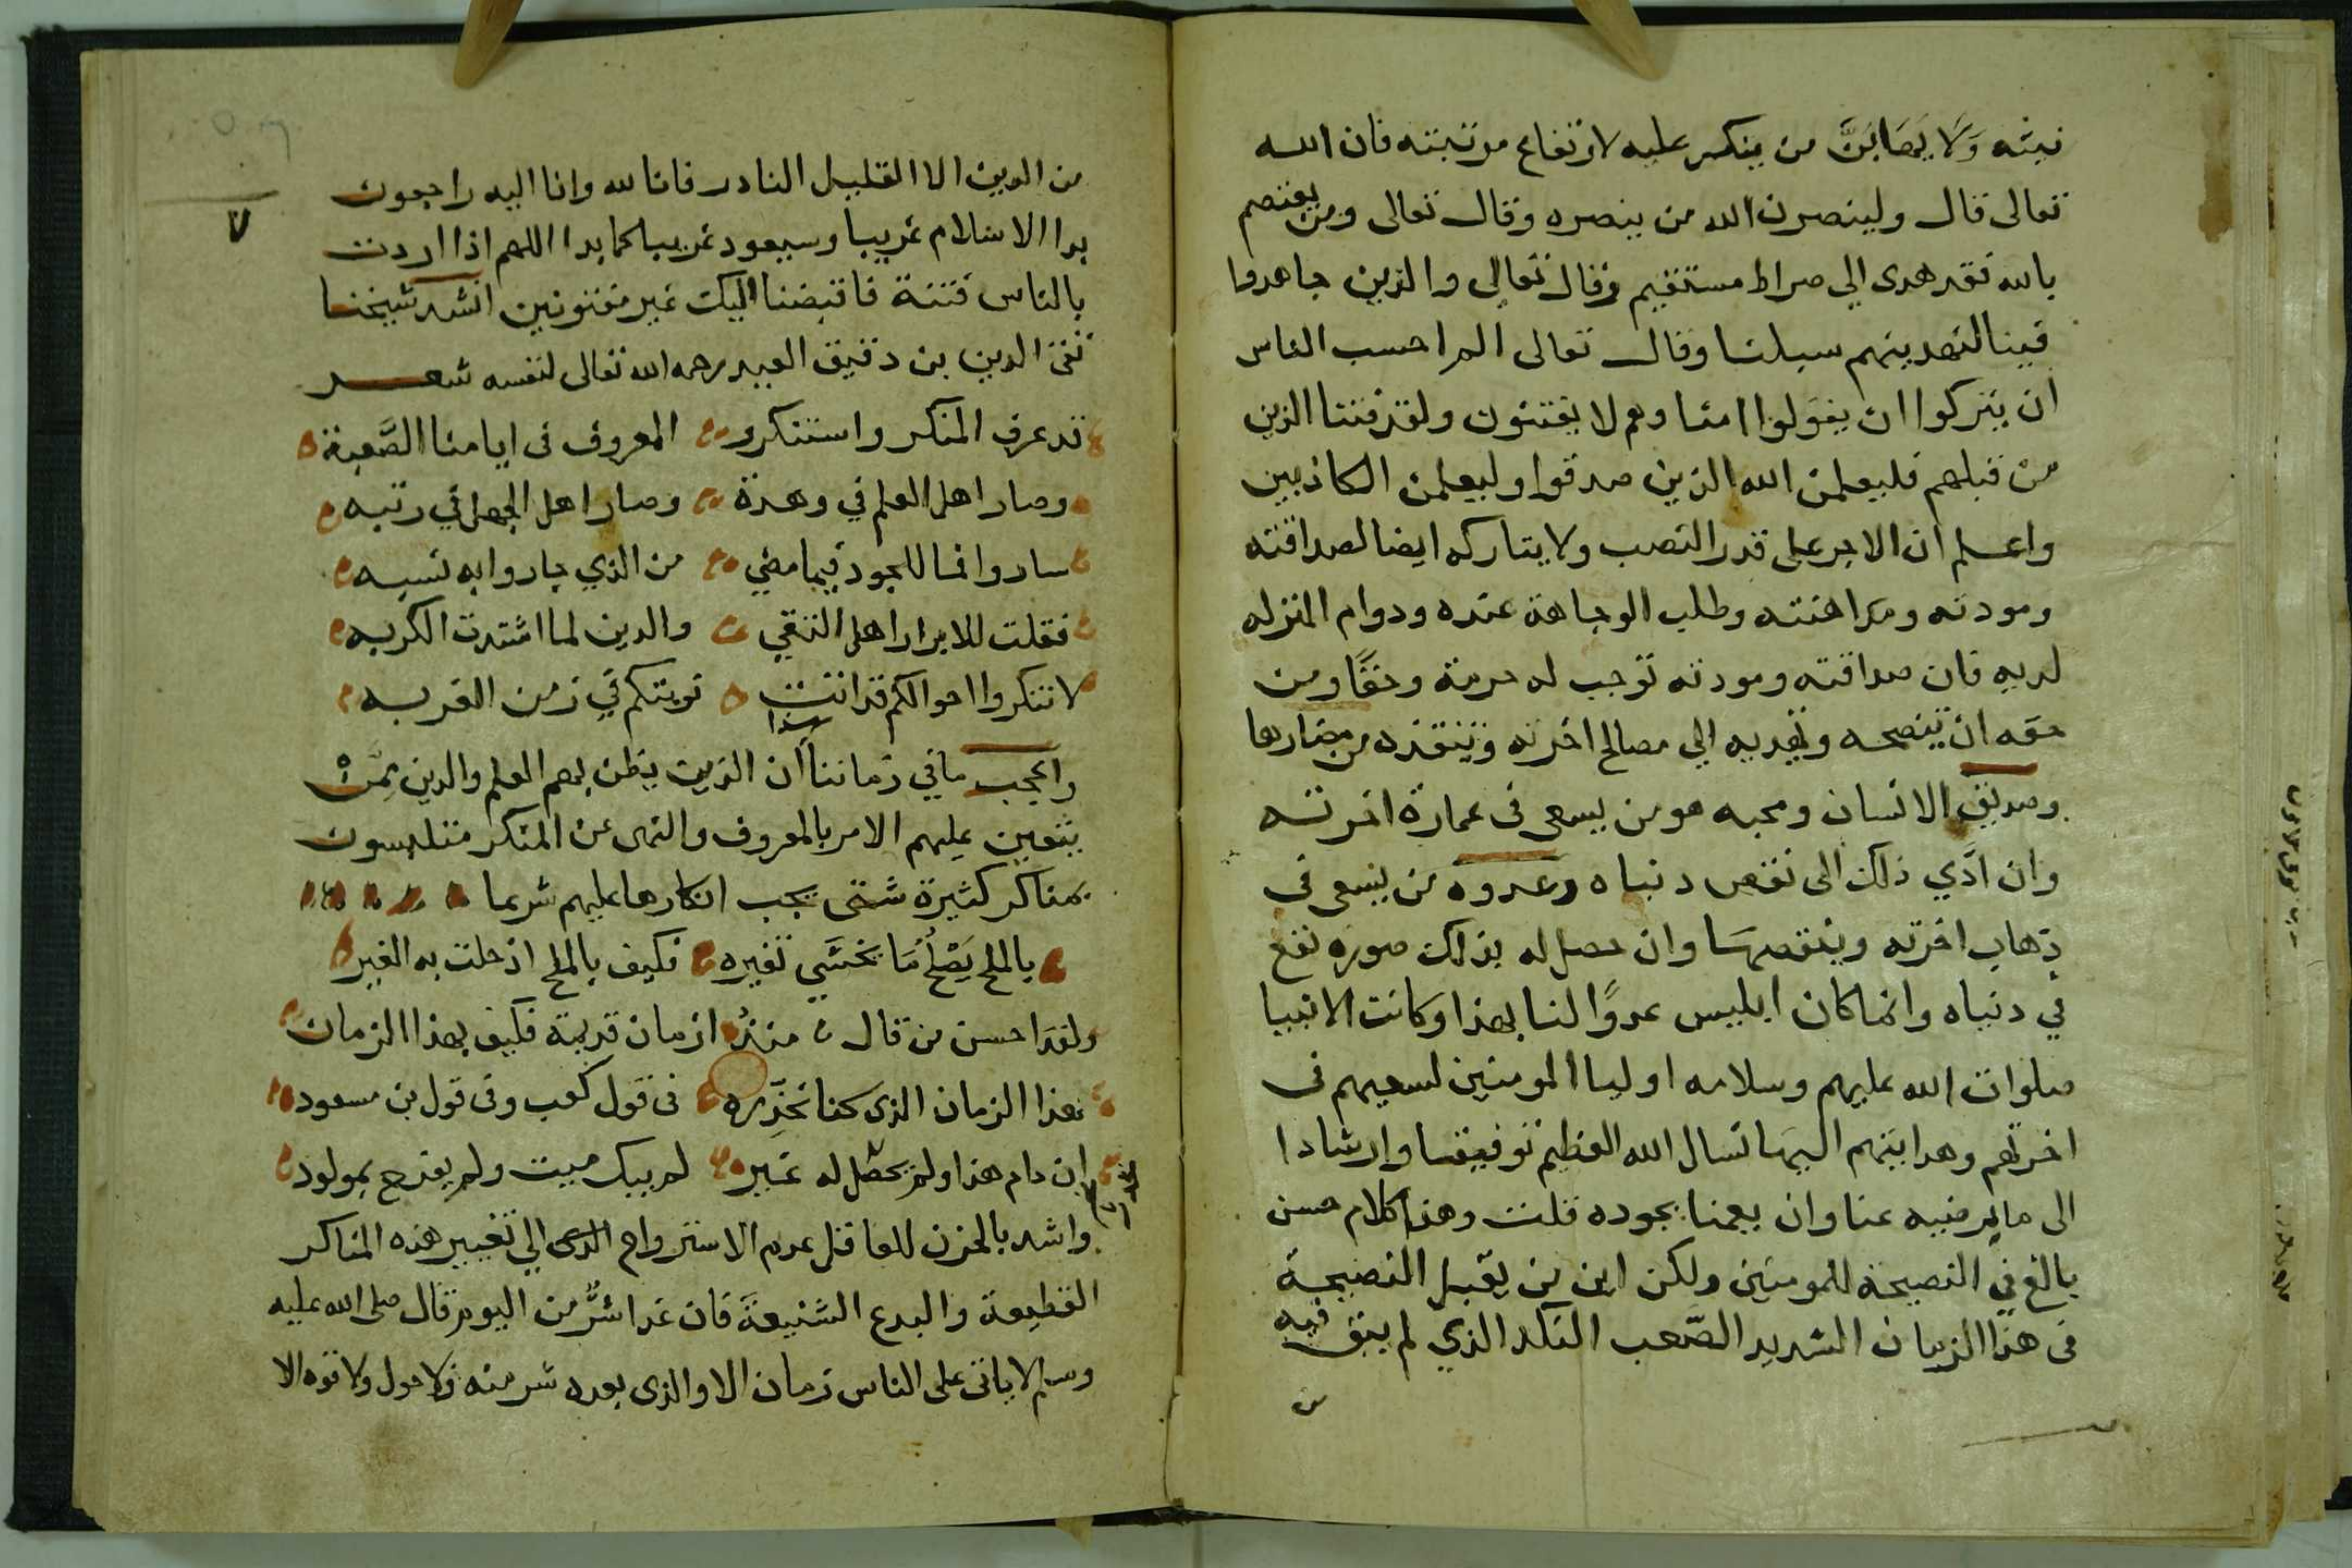 نيته وَلَا يَهَابَنَّ من ينكر عليه لارتفاع مرتبته فان الله
تعالى قال ولينصرن الله من ينصره وقال تعالى ومن يعتصم
بالله فقد هدى الي صراط مستقيم وقال تعالى والذين جاهدوا
فينا لنهدينهم سبلنا وقال تعالى الم احسب الناس
ان يتركوا ان يقولوا امنا وهم لا يفتنون ولقد فتنا الذين
من قبلهم فليعلمن الله الذين صدقوا وليعلمن الكاذبين
واعلم ان الاجر على قدر النصب ولا يتاركه ايضا لصداقته
ومودته ومداهنته وطلب الوجاهة عنده ودوام المنزله
لديه فان صداقته ومودته توجب له حرمة وحقًا ومن
حقه ان ينصحه ويهديه الي مصالح اخرته وينقذه من مضارها
وصديق الانسان ومحبه هو من يسعى فى عمارة اخرته
وان ادَّي ذلك الى نقص دنياه وعدوه من يسعى فى
ذهاب اخرته وينقصها وان حصل له بذلك صوره نفع
في دنياه وانما كان ابليس عدوًا لنا بهذا وكانت الانبيا
صلوات الله عليهم وسلامه اوليا المومنين لسعيهم فى
اخرتهم وهدايتهم اليها نسال الله العظيم توفيقنا وارشادا
الى ما يرضيه عنا وان يعمنا بجوده قلت وهذا كلام حسن
بالغ في النصيحة للمومنين ولكن اين من يقبل النصيحة
فى هذا الزمان الشديد الصَّعب النكد الذي لم يبق فيه
من الدين الا القليل النادر فانا لله وانا اليه راجعون
بدا الاسلام غريبا وسيعود غريبا كما بدا اللهم اذا اردت
بالناس فتنة فاقبضنا اليك غير مفتونين انشد شيخنا
تقى الدين بن دقيق العيد رحمه الله تعالى لنفسه شعر
قد عرف المنكر واستنكر المعروف فى ايامنا الصَّعبة
وصار اهل العلم في وهدة وصار اهل الجهل في رتبه
ساروا فما للجود فيما مضي من الذي جاروا به نسبه
فقلت للابرار اهل التقي والدين لما اشتدت الكربه
لا تنكروا احوالكم قد اتت نوبتكم في زمن الغربه
واعجب ما في زماننا هذا ان الذين يظن بهم العلم والدين مِمَّنْ
يتعين عليهم الامر بالمعروف والنهى عن المنكر متلبسون
بمناكر كثيرة شتى يجب انكارها عليهم شرعا
بالملح يَصْلُحُ مَا يخشَى تغيره فكيف بالملح اذ حلت به الغير
ولقد احسن من قال منذ ازمان قديمة فكيف بهذا الزمان
هذا الزمان الذى كنا نحذِّره فى قول كعب وفى قول بن مسعود
ان دام هذا ولم يحصل له غير لم يبك ميت ولم يفرح بمولود
واشد بالحزن للعاقل عدم الاسترواح الدى الي تغيير هذه المناكر
الفظيعة والبدع الشنيعة فان غدا شرٌّ من اليوم قال صلى الله عليه
وسلم لا ياتى على الناس زمان الا والذى بعده شر منه ولا حول ولا قوه الا